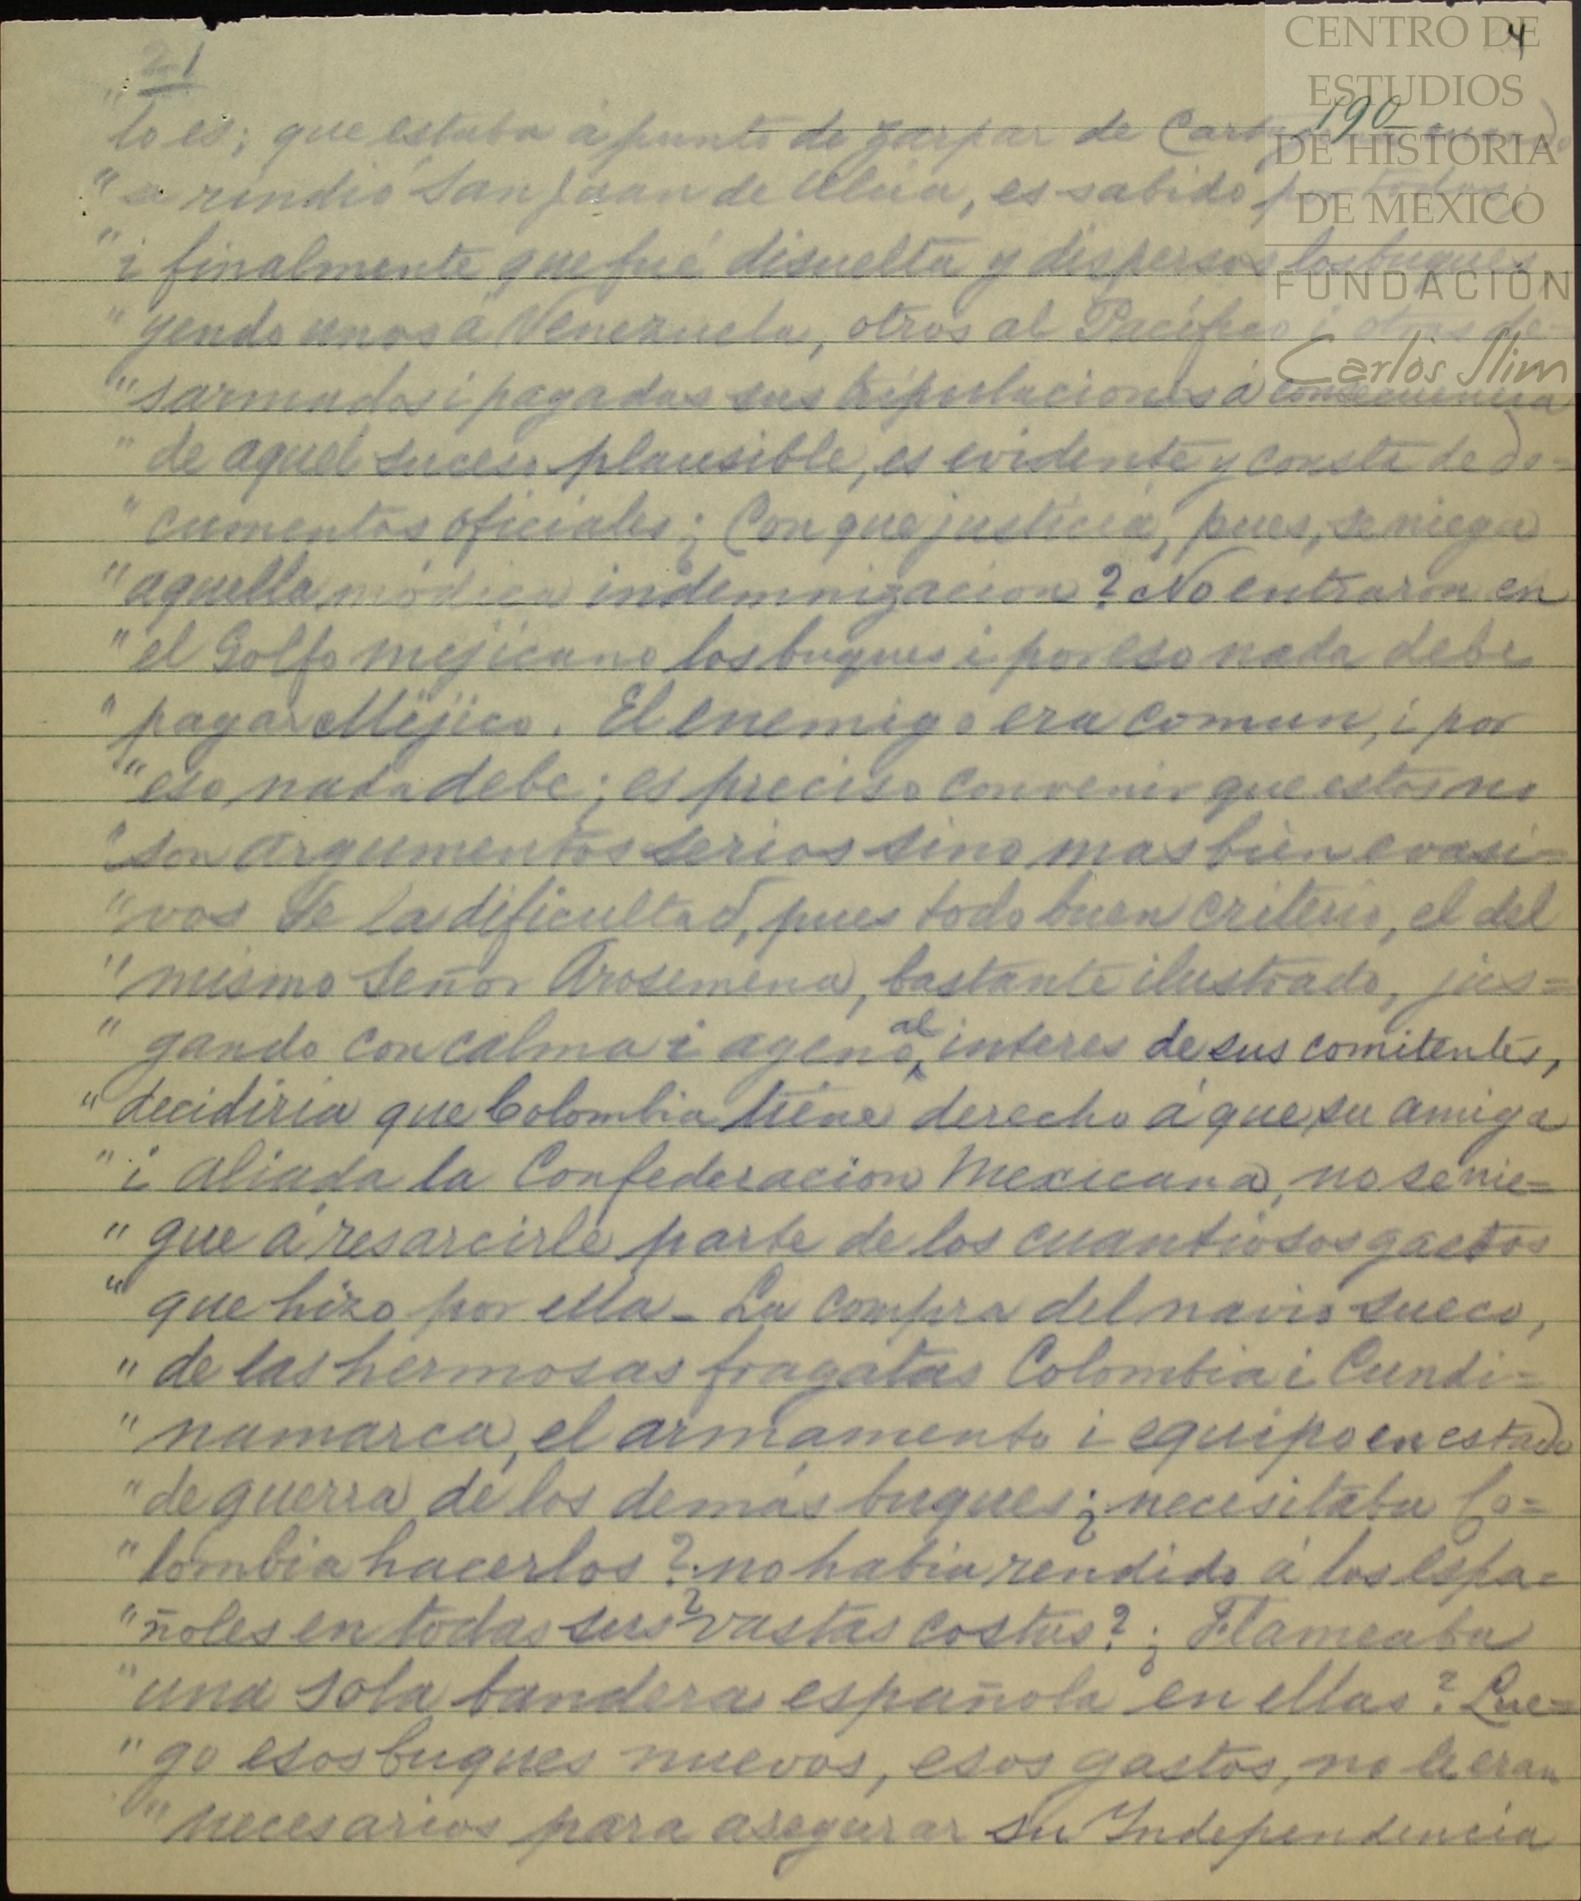 4
190
CENTRO DE
ESTUDIOS
DE HISTORIA
DE MEXICO
FUNDACIÓN
Carlos Slim
" lo es; que estaba á punto de zarpar de
" se rindió San Juan de Ulúa, es sabido por todos;
" i finalmente que fué disuelta y dispersos los buques,
" yendo unos á Venezuela, otros al Pacífico i otros de=
" sarmados i pagadas sus tripulaciones á consecuencia
" de aquel suceso plausible, es evidente y consta de do=
" cumentos oficiales; ¿Con que justicia, pues, se niega
" aquella módica indemnizacion? No entraron en
" el Golfo mejicano los buques i por eso nada debe
" pagar Méjico. El enemigo era comun, i por
" eso nada debe; es preciso convenir que estos no
" son argumentos serios sino mas bien evasi=
" vos de la dificultad, pues todo buen criterio, el del
" mismo Señor Arosemena, bastante ilustrado, juz=
" gando con calma i ageno al interes de sus comitentes,
" decidiria que Colombia tiene derecho á que su amiga
" i aliada la Confederacion Mexicana, no se nie=
" gue á resarcirle parte de los cuantiosos gastos
" que hizo por ella_ La compra del navio sueco,
" de las hermosas fragatas Colombia i Cundi=
" namarca, el armamento i equipo en estado
" de guerra de los demás buques; ¿necesitaba Co=
" lombia hacerlos? ¿no habia rendido á los espa=
" ñoles en todas sus vastas costas? ¿Flameaba
" una sola bandera española en ellas? Lue=
" go esos buques nuevos, esos gastos, no le eran
" necesarios para asegurar su Independencia